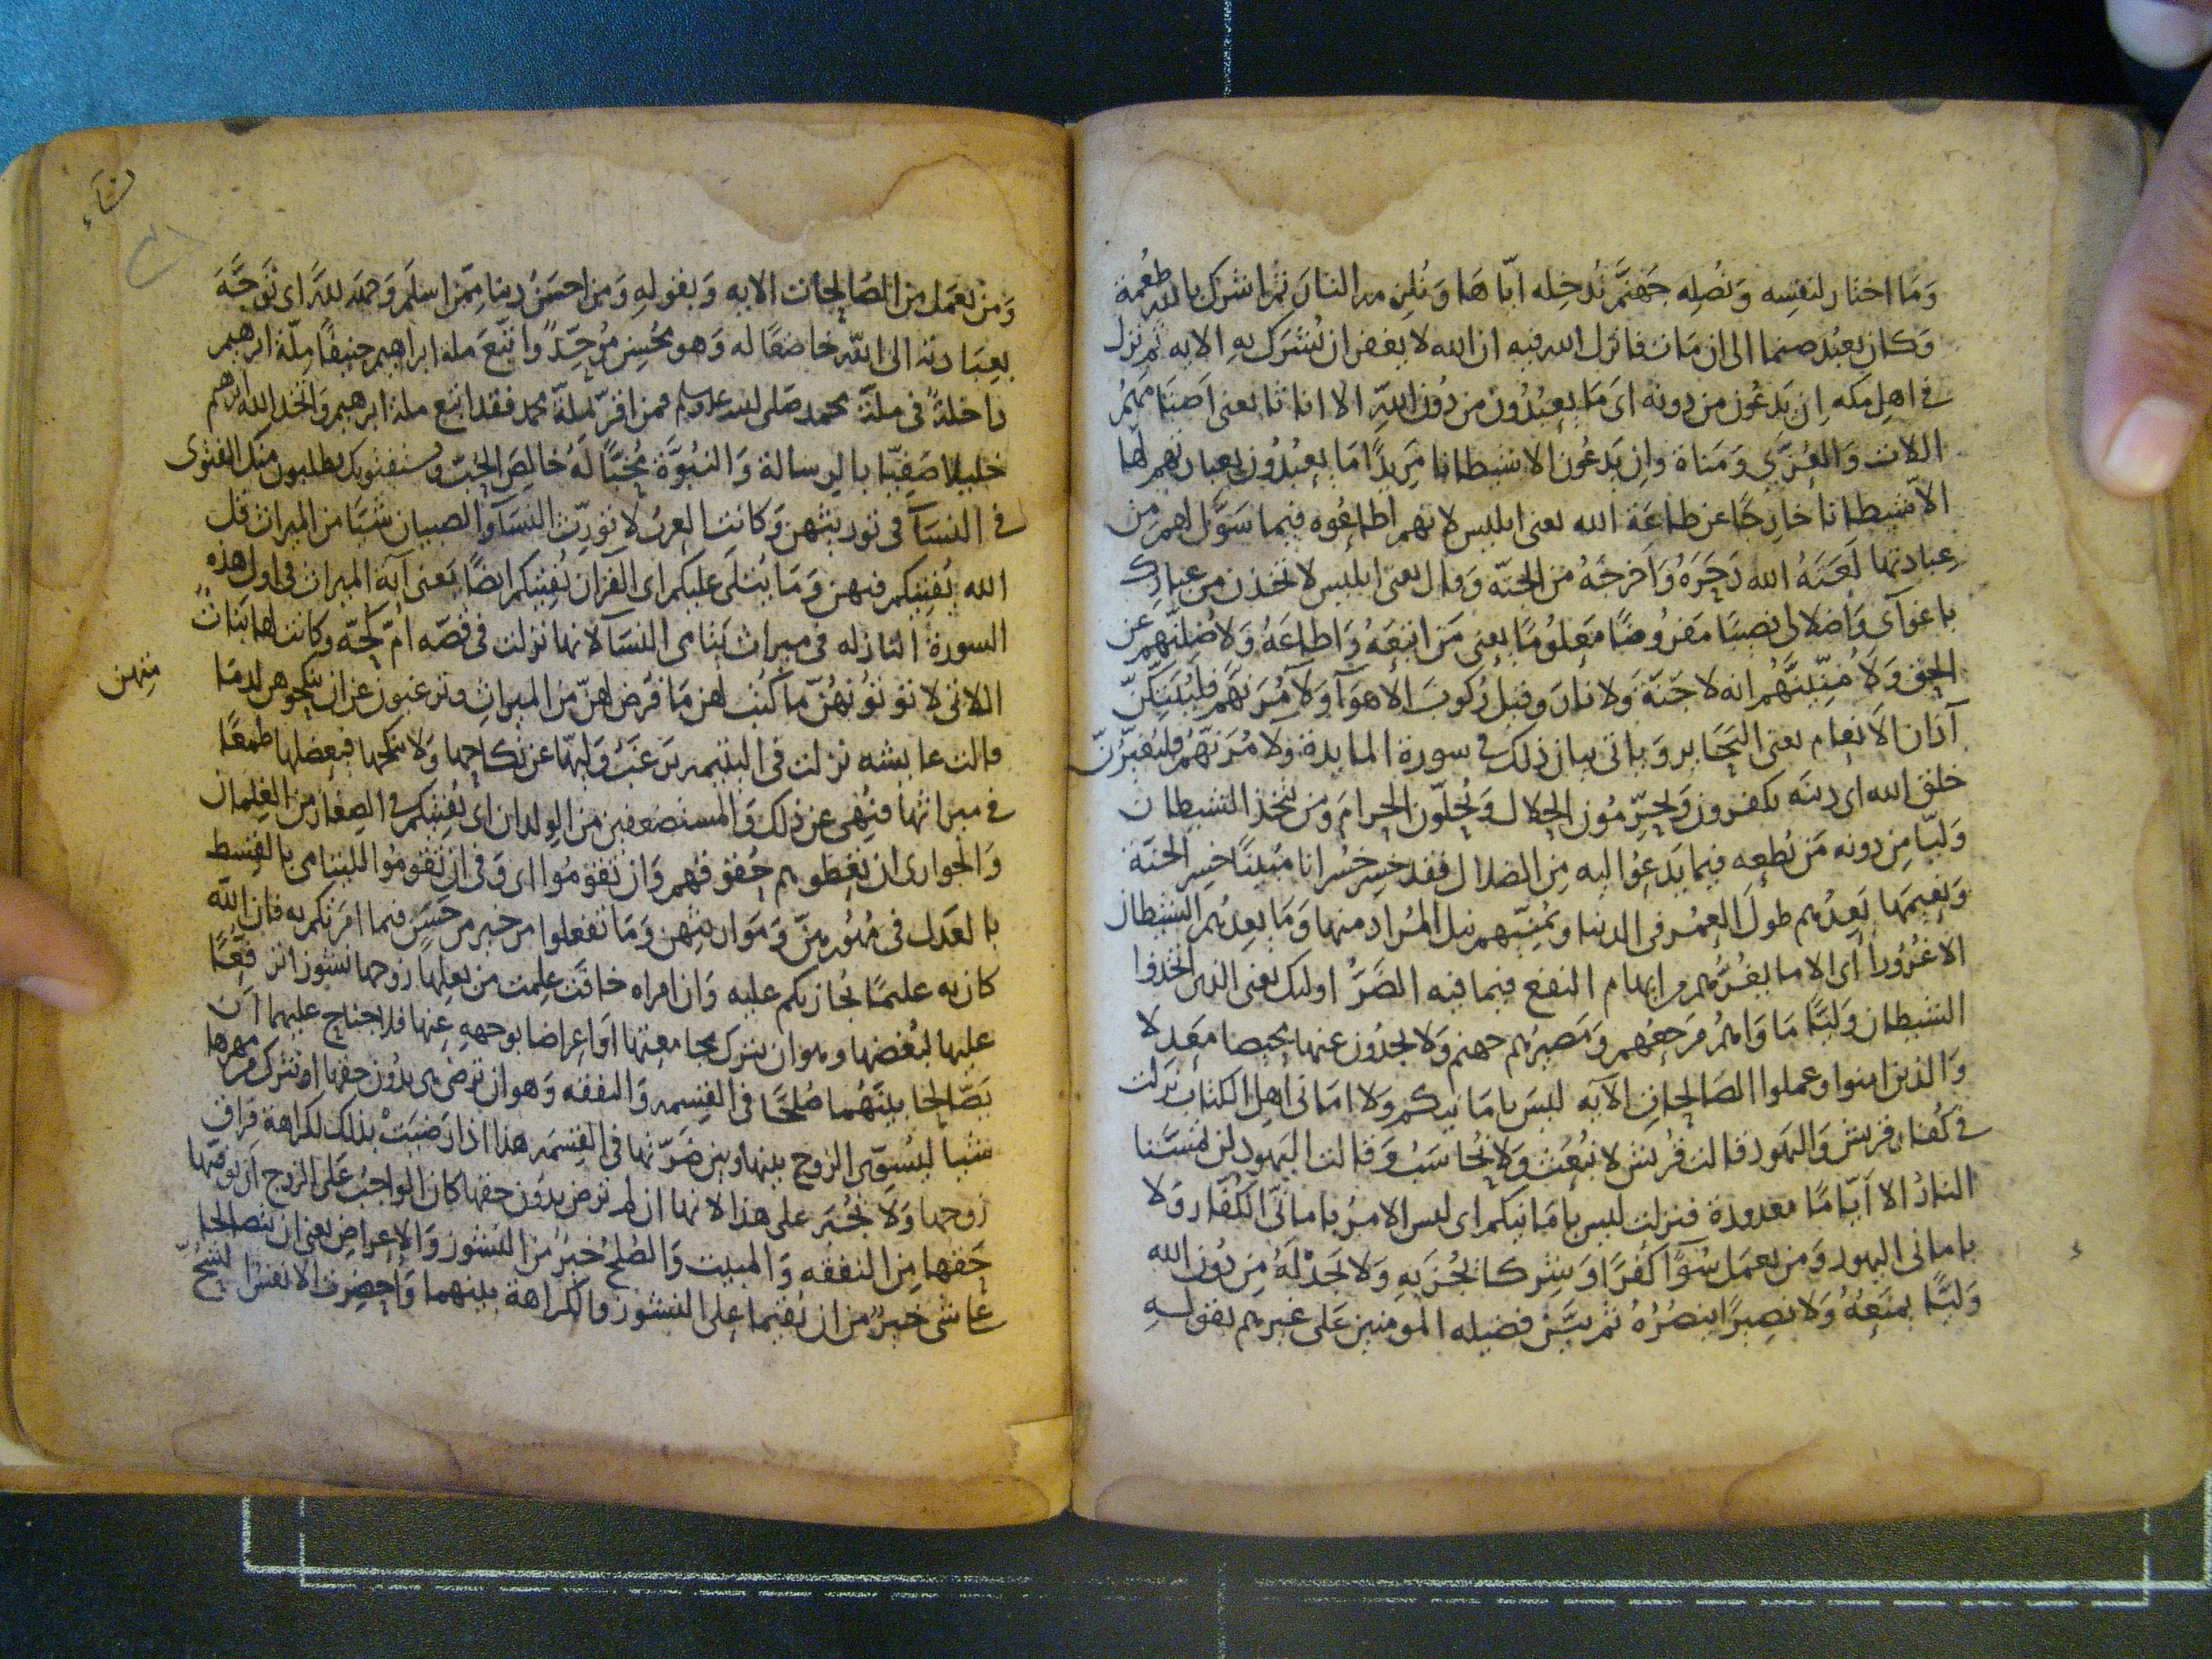 وَمَا اختار لنفسِه وَنُصْلِه جَهَنَّمَ نُدخِله ايّاها وَنُلزِمه النار ثم اشرك بالله طعمة
وَكان يعبُد صنما الى ان مَات فانزل الله فيه ان الله لا يغفر ان يُشرَك بهِ الايه ثم نزل
في اهل مكه اِن يَدعُون من دونه اىَ مَا يعبُدُون من دُون اللهِ الا اناثا يعنى اَصنامهم
اللات وَالعُزّى وَمَناة وان يَدعُون الا شيطانا مَرِيدًا مَا يعبُدُون بعبادتهم لها
الا شيطانا خارِجًا عن طاعَة الله يعنى ابليس لانهم اطاعُوه فيما سَوَّل لهم من
عِبادتها لَعَنَهُ الله زَجَرَهُ وَاَخرجَهُ من الجنّة وَقال يعنى ابليس لاتخذن من عبادك
باغوآى وَاضلالى نصيبًا مَفرُوضًا مَعلُومًا يعنى مَن اتبعَهُ وَاطاعَهُ وَلاُضِلّنهم عن
الحق وَلاُمَنّيَنَّهُم انه لا جَنّة وَلا نار وقيل رُكوبَ الاهوآ وَلآمُرَنّهم فليُبَتِكُنّ
آذان الاَنعام يعنى البَحَاير وَياتى بيان ذلك في سورة المايدة وَلآمُرَنّهُم فليُغيّرُنّ
خلق الله اى دينه يكفرون وَيُحرِّمُون الحلال وَيُحلّون الحرامَ وَمن يتخذ الشيطان
وَليّا مِن دونه مَن يُطعِه فيما يَدعُوا اليه مِن الضلال فقد خسِر خُسرانا مُبينًا خسِر الجنّة
وَنعِيمَها يَعِدُهم طولَ العُمر فى الدنيا وَيُمَنّيهم نيل المُراد منها وَمَا يعِدُهم الشيطان
الا غُرُورا اى الا ما يغُرّهم من ايهام النفع فيما فيه الضَرَرُ اوليك يعنى الذين اتخذوا
الشيطان وَليًّا مَاوَاهُم مَرجعُهم وَمَصيرُهم جهنم وَلا يجدُون عنها محيصا مَعدِلا
وَالذين امنوا وعملوا الصَالحاتِ الآيه ليسَ بامَانيكم وَلا امَانى اهل الكتاب نزلت
في كُفار قريش وَاليهود قالت قُريش لا نُبعَث وَلا نُحاسَبُ وَقالت اليهود لن تمسَّنا
النارُ الا اَيّامًا معدودة فنزلت ليس بامَانيكم اى ليس الامرُ بامانّى الكُفّار وَلا
بامانى اليهود وَمن يعمَل سُوًآ كُفرًا اَو شِركا يُجزَ بهِ وَلا يَجدْ لَهُ مِن دُون الله
وَليًّا يمنعُهُ وَلا نصِيرًا ينصُرُهُ ثم بيّن فضيله المومنين عَلى غيرهم بقولهِ
نسآء
وَمَن يعمَل من الصَالحات الايه وَبقولهِ وَمن احسَنُ دينا مِمّن اسلَم وَجهَه للهِ اى توَجَّهَ
بعِبَادته الى الله خاضعًا له وَهو مُحسِن مُوَحِّدٌ واتّبعَ ملة ابراهيم حنيفًا مِلّة ابرهيم
داخلةٌ فى ملّة محمد صَلى الله عليه وسلم فمن اقرّ بملة محمد فقد اتبع ملة ابرهيم وَاتخذ الله ابرهيم
خليلا صَفِيّا بالرسالة وَالنبُوّة مُحِبًّا لَهُ خالِصَ الحُبّ ويستفتونك يطلبون منك الفتوى
في النسَآ فى توريثهن وَكانت العربُ لا تورِّث النسَآ وَالصبيان شيئا من الميراث قل
الله يُفتيكم فيهن وَمَا يُتلَى عليكم اى القرآن يُفتيكم ايضًا يَعنى آية الميراث فى اول هذه
السورة النازله فى ميراث يَتامى النسَآ لانها نزلت فى قصّه اُمّ كُجّه وكانت لها بَنَاتٌ
اللاتى لا توتونهُنّ ما كُتِب لهن مَا فرض لهنّ من الميراث وترغبون عن ان تنكحوهن لدمَامتهن
قالت عايشه نزلت فى اليتيمه يَرغبُ وَليُّها عن نكاحِها وَلا يُنكحها فيعضلها طمعًا
في ميراثها فنُهِى عن ذلك وَالمستضعفين من الوِلدان اى يُفتيكم في الصِغار من الغِلمان
وَالجوارى ان تُعطوهم حُقوقهم وَان تقوموا اى وَفى ان تقومُوا لليتامى بالقِسط
بالعَدل فى مُهُورهنّ وَمَوَاريثهن وَمَا تفعلوا من خير من حَسَن فيما امرتكم به فان الله
كان به عليمًا يُجازيكم عليه وَان امراه خافَت علِمت من بَعلِها زوجها نشوزا ترفّعًا
عليها لبُغضها وهو ان يترك مجامعتها اَو اعراضا بوجههِ عنها فلا جناح عليهما اَن
يَصّالحا بينَهُما صُلحًا فى القِسمه وَالنفقه وَهو ان ترضى بدُون حقها او تترك من مهرها
شيئا ليُسوّى الزوج بينها وبين ضَرّتها فى القِسمَه هذا اذا رَضيَتْ بذلك لكراهة فراق
زوجها وَلا تُجبَر على هذا لانها ان لم ترض بدون حقها كان الواجبُ عَلى الزوج اَن يوفيّها
حَقها مِن النفقه وَالمبيت وَالصُلحُ خيرٌ من النُشوز وَالاِعراضِ يعنى ان يتصالحا
عَلى شى خيرٌ من ان يُقيما على النشوز والكراهة بينهما وَاُحضِرت الانفسُ الشُحّ